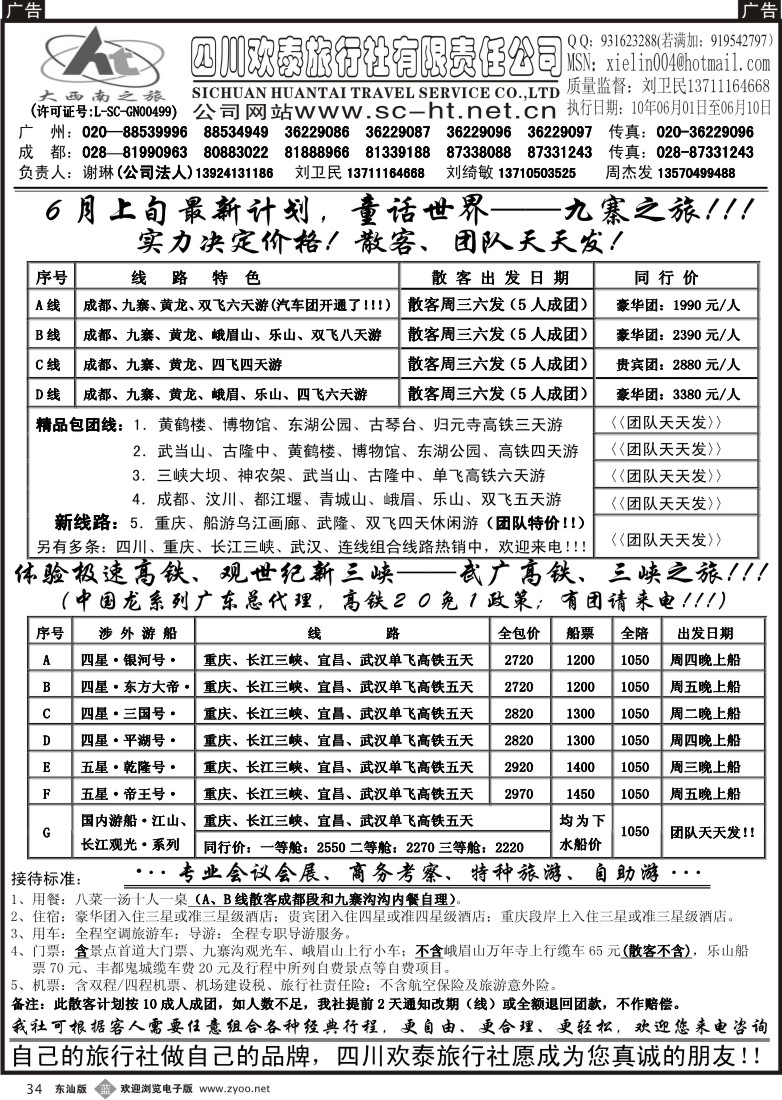 广告
广告
ht
大西南之旅
(许可证号:L-SC-GN00499)
四川欢泰旅行社有限责任公司
SICHUAN HUANTAI TRAVEL SERVICE CO.,LTD
公司网站www.sc-ht.net.cn
QQ：931623288(若满加：919542797)
MSN：xielin004@hotmail.com
质量监督：刘卫民13711164668
执行日期：10年06月01日至06月10日
广　州：020—88539996　88534949　36229086　36229087　36229096　36229097　传真：020-36229096
成　都：028—81990963　80883022　81888966　81339188　87338088　87331243　传真：028-87331243
负责人：谢琳(公司法人)13924131186　刘卫民 13711164668　刘绮敏 13710503525　周杰发 13570499488
6月上旬最新计划，童话世界——九寨之旅!!!
实力决定价格！散客、团队天天发！
序号　线　路　特　色　散客出发日期　同行价
A线　成都、九寨、黄龙、双飞六天游(汽车团开通了!!!)　散客周三六发（5人成团）　豪华团：1990元/人
B线　成都、九寨、黄龙、峨眉山、乐山、双飞八天游　散客周三六发（5人成团）　豪华团：2390元/人
C线　成都、九寨、黄龙、四飞四天游　散客周三六发（5人成团）　贵宾团：2880元/人
D线　成都、九寨、黄龙、峨眉、乐山、四飞六天游　散客周三六发（5人成团）　豪华团：3380元/人
精品包团线：1．黄鹤楼、博物馆、东湖公园、古琴台、归元寺高铁三天游　〈〈团队天天发〉〉
2．武当山、古隆中、黄鹤楼、博物馆、东湖公园、高铁四天游　〈〈团队天天发〉〉
3．三峡大坝、神农架、武当山、古隆中、单飞高铁六天游　〈〈团队天天发〉〉
4．成都、汶川、都江堰、青城山、峨眉、乐山、双飞五天游　〈〈团队天天发〉〉
新线路：5．重庆、船游乌江画廊、武隆、双飞四天休闲游（团队特价!!）
另有多条：四川、重庆、长江三峡、武汉、连线组合线路热销中，欢迎来电!!!　〈〈团队天天发〉〉
体验极速高铁、观世纪新三峡——武广高铁、三峡之旅!!!
(中国龙系列广东总代理，高铁20免1政策；有团请来电!!!)
序号　涉外游船　线　路　全包价　船票　全陪　出发日期
A　四星·银河号·　重庆、长江三峡、宜昌、武汉单飞高铁五天　2720　1200　1050　周四晚上船
B　四星·东方大帝·　重庆、长江三峡、宜昌、武汉单飞高铁五天　2720　1200　1050　周五晚上船
C　四星·三国号·　重庆、长江三峡、宜昌、武汉单飞高铁五天　2820　1300　1050　周二晚上船
D　四星·平湖号·　重庆、长江三峡、宜昌、武汉单飞高铁五天　2820　1300　1050　周四晚上船
E　五星·乾隆号·　重庆、长江三峡、宜昌、武汉单飞高铁五天　2920　1400　1050　周三晚上船
F　五星·帝王号·　重庆、长江三峡、宜昌、武汉单飞高铁五天　2970　1450　1050　周五晚上船
G　国内游船·江山、　重庆、长江三峡、宜昌、武汉单飞高铁五天　均为下　1050　团队天天发!!
长江观光·系列　同行价：一等舱：2550 二等舱：2270 三等舱：2220　水船价
···专业会议会展、商务考察、特种旅游、自助游···
接待标准：
1、用餐：八菜一汤十人一桌(A、B线散客成都段和九寨沟沟内餐自理)。
2、住宿：豪华团入住三星或准三星级酒店；贵宾团入住四星或准四星级酒店；重庆段岸上入住三星或准三星级酒店。
3、用车：全程空调旅游车；导游：全程专职导游服务。
4、门票：含景点首道大门票、九寨沟观光车、峨眉山上行小车；不含峨眉山万年寺上行缆车65元(散客不含)，乐山船
票70元、丰都鬼城缆车费20元及行程中所列自费景点等自费项目。
5、机票：含双程/四程机票、机场建设税、旅行社责任险；不含航空保险及旅游意外险。
备注：此散客计划按10成人成团，如人数不足，我社提前2天通知改期（线）或全额退回团款，不作赔偿。
我社可根据客人需要任意组合各种经典行程，更自由、更合理、更轻松，欢迎您来电咨询
自己的旅行社做自己的品牌，四川欢泰旅行社愿成为您真诚的朋友!!
34　东汕版　蓝　欢迎浏览电子版 www.zyoo.net